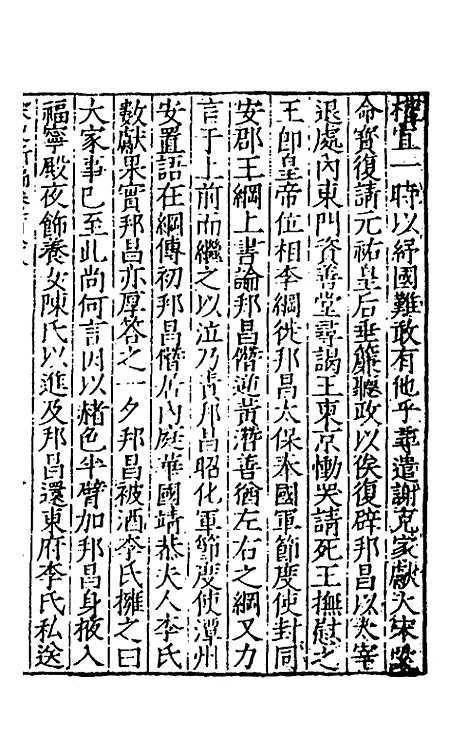 權宜一時以紓國難敢有他乎乖遣謝克家獻大宋
命寳復請元祐皇后垂簾聽政以俟復辟邦昌以太宰
退處內東門資善堂尋謁王東京慟哭請死王撫慰之
王即皇帝位相李綱徙邦昌太保奉國軍節度使封同
安郡王綱上書論邦昌僭逆黃潛善猶左右之綱又力
言于上前而繼之以泣乃責邦昌昭化軍節度使潭州
安置語在綱傳初邦昌僭居內庭華國靖恭夫人李氏
數獻果實邦昌亦厚答之一夕邦昌被酒李氏擁之曰
大家事已至此尚何言因以赭色半臂加邦昌身掖入
福寧殿夜飾養女陳氏以進及邦昌還東府李氏私送